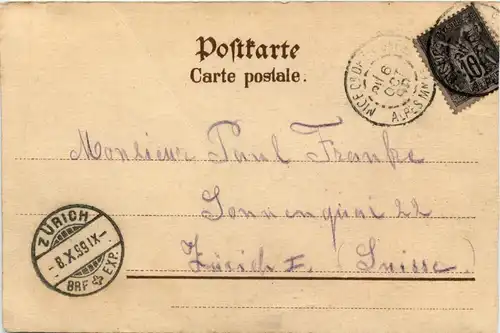 Postkarte
Carte postale.
NICE
ALPES MMES
10
Monsieur Paul Franke
Sonnenquai 22
Zürich I. (Suisse)
ZÜRICH
-8.X.99.IX-
BRF EXP.